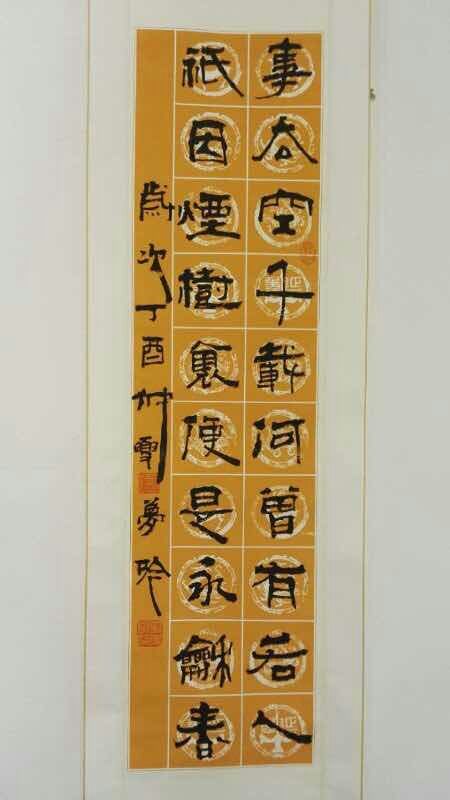 事去空千載何曾有若人
祇因煙樹裏便是永龢春
歲次丁酉雪夢